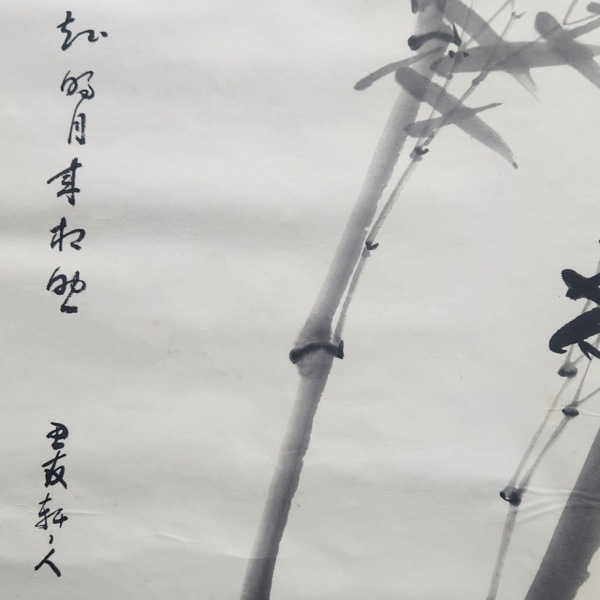 知明月来相照
友軒人